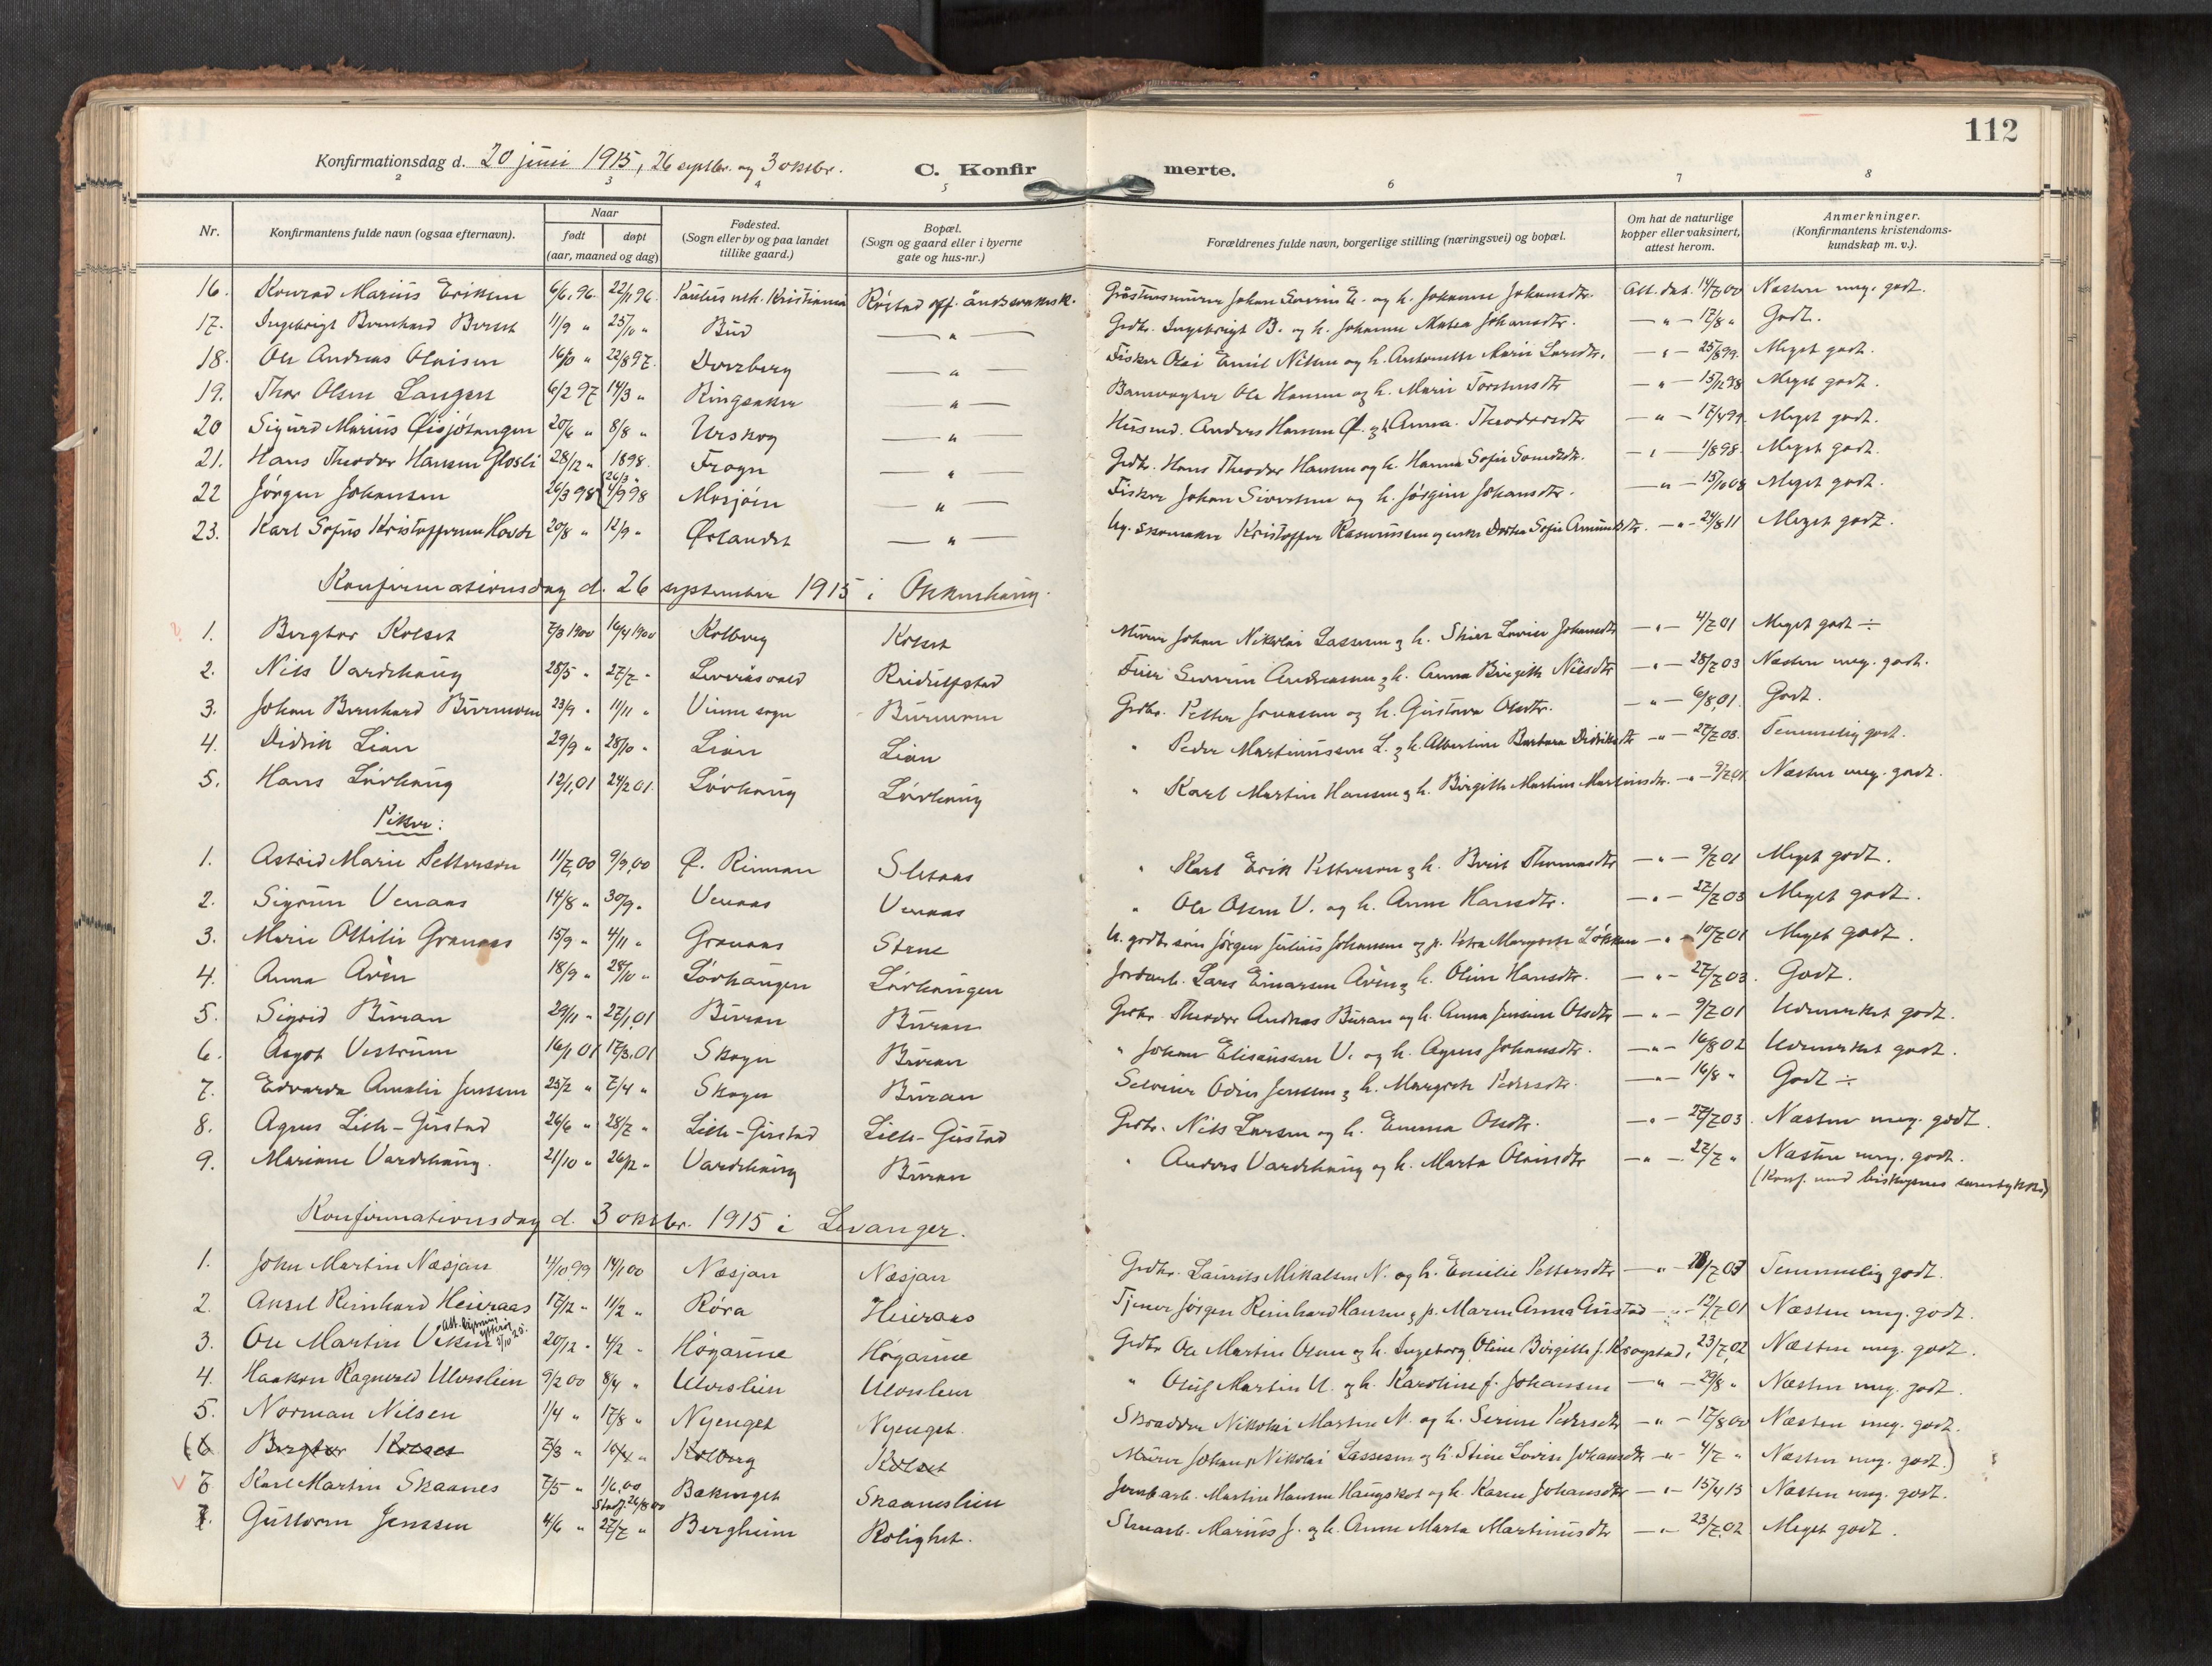 112
Konfirmationsdag d. 20 juni 1915, 26 septbr. og 3 oktbr. C. Konfirmerte.
2 3 4 5 6 7 8
Nr. Konfirmantens fulde navn (ogsaa efternavn). Naar født døpt (aar, maaned og dag) Fødested. (Sogn eller by og paa landet tillike gaard.) Bopæl. (Sogn og gaard eller i byerne gate og hus-nr.) Forældrenes fulde navn, borgerlige stilling (næringsvei) og bopæl. Om hat de naturlige kopper eller vaksinert, attest herom. Anmerkninger. (Konfirmantens kristendomskundskap m. v.).
16. Konrad Marius Eriksen 6/6 96. 22/11 96. Paulus mh. Kristiania Røstad off. åndssvaksk. Johan Severin E. og h. Johanne Johansdtr. Att. dat. 14/7 00 Næsten meg. godt.
17. Ingebrigt Bernhard 11/9 " 25/10 " Bud — " — Grdbr. Ingebrigt B. og h. Johanne Matea Johansdtr. — " — 17/8 " Godt.
18. Ole Andreas Olaisen 16/10 " 22/8 97. Dverberg — " — Fisker Olai Emil Nilsen og h. Antonette Marie Larsdtr. — " — 25/8 99. Meget godt.
19. Thor Olsen Langen 6/2 97 14/3 " Ringsaker — " — Banevogter Ole Hansen og h. Marie Torstensdtr — " — 15/12 98 Meget godt.
20 Sigurd Marius Øisjøtangen 20/6 " 8/8 " Urskog — " — Husmd. Anders Hansen Ø. og h. Anna Theodorsdtr — " — 17/4 99. Meget godt.
21. Hans Theodor Hansen Glosli 28/12 " 1898. Frogn — " — Grdbr. Hans Theodor Hansen og h. Hanna Sofie — " — 1/8 98. Meget godt.
22 Jørgen Johansen 26/3 98 (26/3 " 4/9 98 Mosjøen — " — Fisker Johan Sivertsen og h. Jørgine Johansdtr. — " — 15/10 08 Meget godt.
23. Karl Sofus Kristoffersen Hovde 20/8 " 12/9 " Ørlandet — " — Ug. skomaker Kristoffer Rasmussen og enke Dortea Sofie Amundsdtr. — " — 24/8 11 Meget godt.
Konfirmationsdag d. 26 september 1915 i Okkenhaug.
1. Bergtor Kolset 7/3 1900 16/4 1900 Kolberg Kolset Murer Johan Nikolai Lassesen og h. Stine Lovise Johansdtr — " — 4/7 01 Meget godt ÷
2. Nils Vardehaug 28/5 " 27/7 " Reidulfstad Severin Andreassen og h. Anna Birgitte Nilsdtr — " — 28/7 03 Næsten meg. godt.
3. Johan Bernhard Buremoen 23/9 " 11/11 " Vinne sogn Buremoen Grdbr. Petter Jonassen og h. Gustava Olsdtr. — " — 6/8 01. Godt.
4. Didrik Lian 29/9 " 28/10 " Lian Lian " Peder Martinussen L. og h. Albertine Barbara Didriksdtr — " — 27/7 03. Temmelig godt.
5. Hans Løvhaug 12/1 01 24/2 01. Løvhaug Løvhaug " Karl Martin Hansen og h. Birgitte Martine Martinsdtr. — " — 9/7 01 Næsten meg. godt.
Piker:
1. Astrid Marie Petterson 11/7 00 9/9 00 Ø. Rinnan Sletaas " Karl Erik Petterson og h. Berit Thomasdtr — " — 9/7 01 Meget godt.
2. Sigrun Venaas 14/8 " 30/9 " Venaas Venaas " Ole Olsen V. og h. Anne Hansdtr. — " — 27/7 03 Meget godt.
3. Marie Ottilie Granaas 15/9 " 4/11 " Granaas Stene U. grdbr. søn Jørgen Julius Johansen og p. Petra Margrete Løkken — " — 10/7 01 Meget godt.
4. Anna Aren 18/9 " 28/10 " Løvhaugen Løvhaugen Jordarb. Lars Einarsen Aren og h. Oline Hansdtr. — " — 27/7 03. Godt.
5. Sigrid Buran 29/11 " 27/1 01 Buran Buran Grdbr. Theodor Andreas Buran og h. Anna Jensine Olsdtr — " — 9/7 01 Udmerket godt.
6. Aagot Vestrum 16/1 01 17/3 01 Skogn Buran " Johan Eliseussen V. og h. Agnes Johansdtr. — " — 16/8 02 Udmerket godt.
7. Edvarda Amalie Jenssen 25/2 " 7/4 " Skogn Buran Selveier Odin Jenssen og h. Margrete Pedersdtr. — " — 16/8 " Godt ÷
8. Agnes Litle-Girstad 26/6 " 28/7 " Litle-Girstad Litle-Girstad Grdbr. Nils Larsen og h. Emma Olsdtr. — " — 27/7 03. Næsten meg. godt.
9. Mariane Vardehaug. 21/10 " 26/12 " Vardehaug Buran " Anders Vardehaug og h. Marta Olaisdtr — " — 27/7 " Næsten meg. godt.
(Konf. med biskopens samtykke)
Konfirmationsdag d. 3 oktbr. 1915 i Levanger.
1. John Martin Næsjan 4/10 99 14/1 00 Næsjan Næsjan Grdbr. Laurits Mikalsen N. og h. Emilie Pettersdtr — " — 28/7 03 Temmelig godt.
2. Aksel Reinhard Heieraas 17/12 " 11/2 " Røra Heieraas Tjener Jørgen Reinhard Hansen og p. Maren Anna Gustad — " — 12/7 01 Næsten meg. godt.
3. Ole Martin 20/12 " 4/2 " Høgaune Høgaune Grdbr Ole Martin Olsen og h. Ingeborg Oline Birgitte f. Krogstad, 23/7 02 Næsten meg. godt.
4. Haakon Ragnvald Ulvoslien 9/2 00 8/4 " Ulvoslien Ulvoslien " Oluf Martin U. og h. Karoline f. Johansen — " — 29/8 " Næsten meg. godt.
5. Norman Nilsen 1/4 " 17/8 " Nyenget Nyenget. Skrædder Nikolai Martin N. og h. Serine Pedersdtr — " — 17/8 00 Næsten meg. godt.
(6 Bergtor Kolset 7/3 " 16/4 " Kolberg Kolset Murer Johan Nikolai Lassesen og h. Stine Lovise Johansdtr — " — 4/7 " Næsten meg. godt.)
6 Karl Martin Skaanes 7/5 " 1/6 00 Stadf. 26/8 00 Bakenget Skaaneslien Jernbarb. Martin Hansen Haugskot og h. Karen Johansdtr — " — 15/4 15 Næsten meg. godt.
7. Guttorm Jenssen 4/6 " 27/7 " Bergheim Rolighet. Stenarb. Marius J. og h. Anne Marta Martinusdtr — " — 23/7 02 Meget godt.